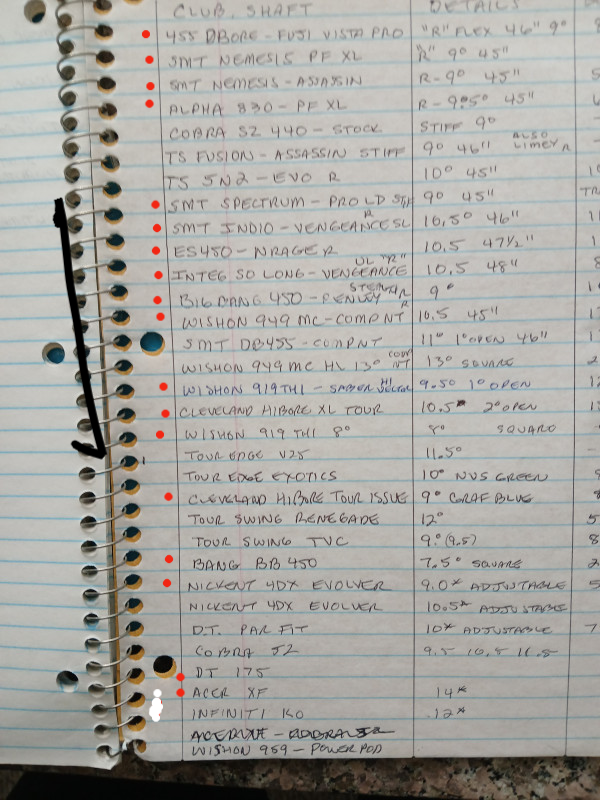 CLUB, SHAFT DETAILS
455 DBORE - FUJI VISTA PRO "R" FLEX 46" 9°
SMT NEMESIS PF XL "R" 9° 45"
SMT NEMESIS - ASSASSIN R - 9° 45"
ALPHA 830 - PF XL R - 9.5° 45"
COBRA SZ 440 - STOCK STIFF 9°
TS FUSION - ASSASSIN STIFF 9° 46" ALSO LIMEY R
TS 5N2 - EVO R 10° 45"
SMT SPECTRUM - PRO LD STIFF 9° 45"
SMT INDIO - VENGEANCE SL R 10.5° 46"
ES450 - NRAGE R 10.5 47½"
INTEG SO LONG - VENGEANCE UL "R" 10.5 48"
BIG BANG 450 - PENLEY R 9°
WISHON 949 MC - COMPNT 10.5 45"
SMT DB455 - COMPNT 11° 1° OPEN 46"
WISHON 949 MC HL 13° COMPNT 13° SQUARE
WISHON 919 THI - SABER HI VECTOR 9.5° 1° OPEN
CLEVELAND HIBORE XL TOUR 10.5° 2° OPEN
WISHON 919 THI 8° 8° SQUARE
TOUR EDGE V25 11.5°
TOUR EDGE EXOTICS 10° NVS GREEN
CLEVELAND HIBORE TOUR ISSUE 9° GRAF BLUE
TOUR SWING RENEGADE 12°
TOUR SWING TVC 9.° (9.5)
BANG BB 450 7.5° SQUARE
NICKENT 4DX EVOLVER 9.0* ADJUSTABLE
NICKENT 4DX EVOLVER 10.5* ADJUSTABLE
D.T. PAR FIT 10* ADJUSTABLE
COBRA S2 9.5 10.5 11.5
DT 175
ACER XF 14*
INFINITI KO 12*
WISHON 959 - POWER POD